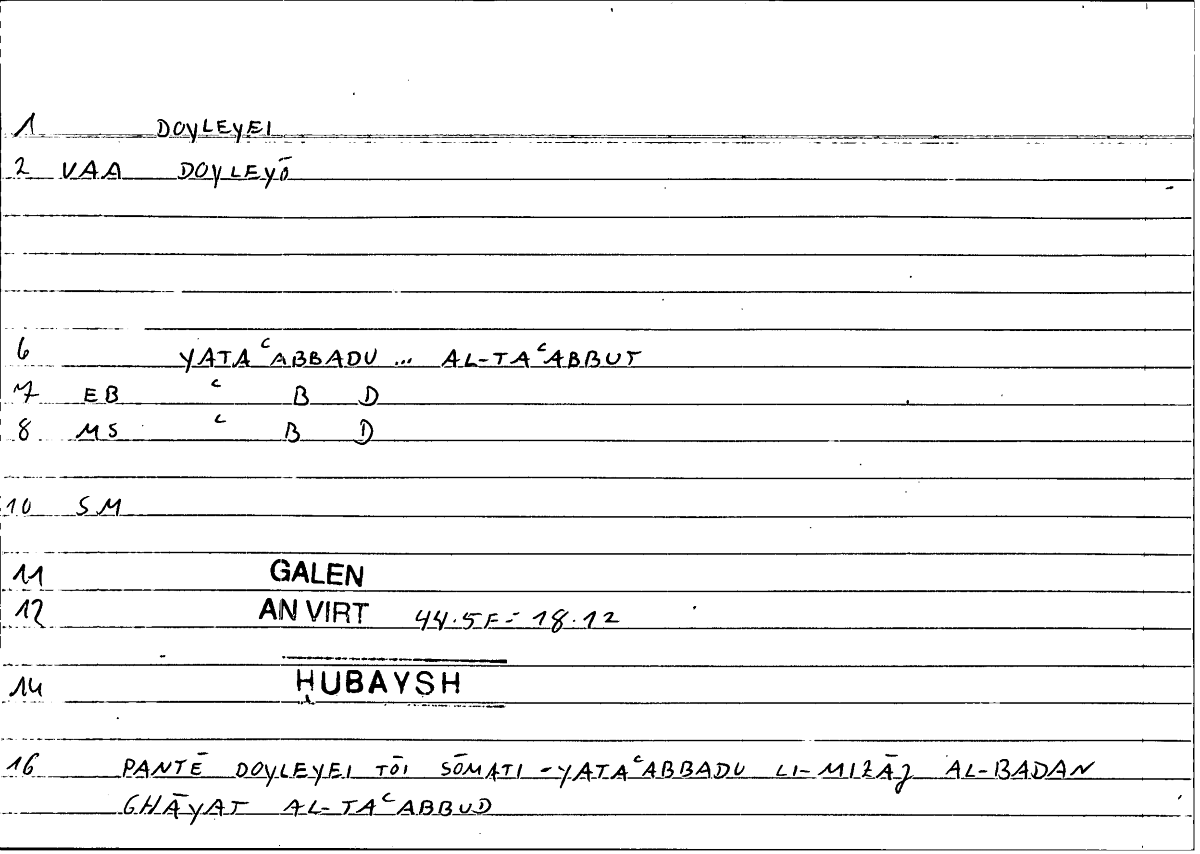 1 DOYLEYEI
2 VAA DOYLEYŌ
6 YATAᶜABBADU ... AL-TAᶜABBUT
7 EB ᶜ B D
8 MS ᶜ B D
10 SM
11 GALEN
12 AN VIRT 44.5F = 18.12
14 ḤUBAYSH
16 PANTĒ DOYLEYEI TŌI SŌMATI - YATAᶜABBADU LI-MIZĀJ AL-BADAN
GHĀYAT AL-TAᶜABBUD